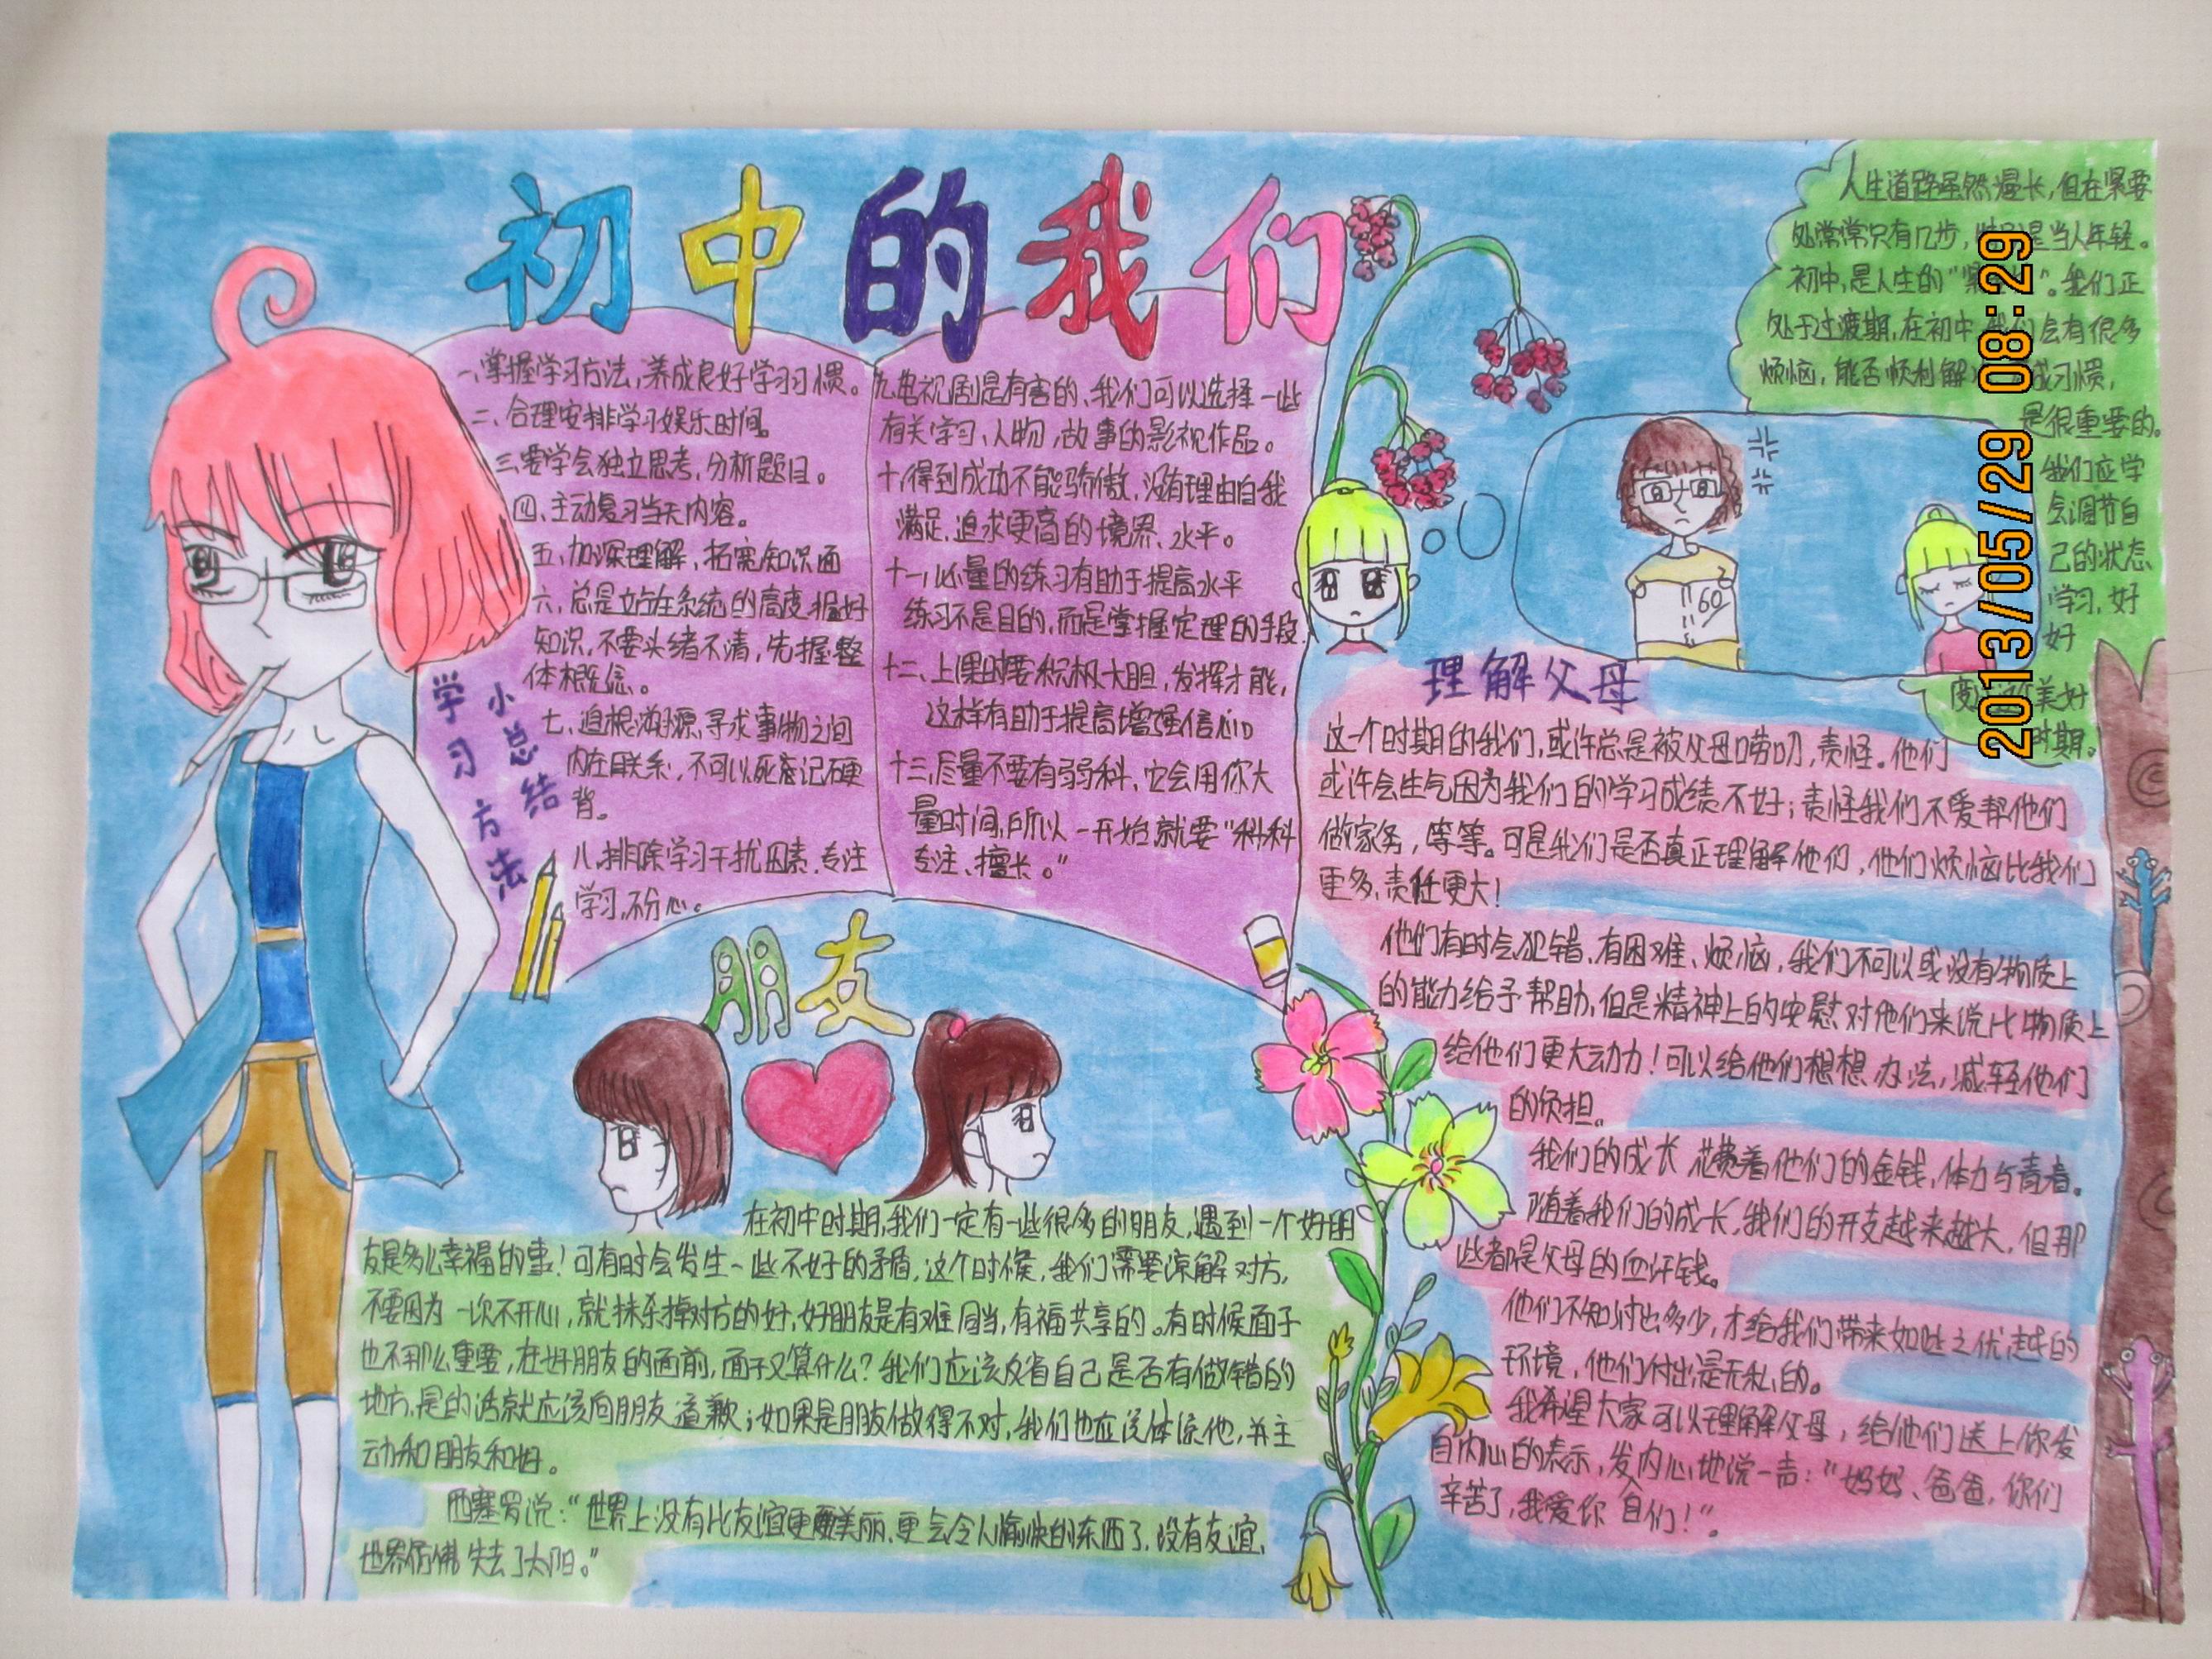 初中的我们
一、掌握学习方法，养成良好学习习惯。
二、合理安排学习娱乐时间。
三、要学会独立思考，分析题目。
四、主动复习当天内容。
五、加深理解，拓宽知识面
六、总是站在系统的高度握好
知识，不要头绪不清，先握整
体概念。
七、追根溯源，寻求事物之间
内在联系，不可以死忘记硬
背。
八、排除学习干扰因素，专注
学习，不分心。
学习方法
小总结
九、电视剧是有害的、我们可以选择一些
有关学习、人物，故事的影视作品。
十、得到成功不能骄傲，没有理由自我
满足，追求更高的境界、水平。
十一、量的练习有助于提高水平
练习不是目的，而是掌握定理的手段
十二、上课时要积极大胆，发挥才能，
这样有助于提高增强信心。
十三、尽量不要有弱科、它会用你大
量时间，所以一开始就要“科科
专注、擅长。”
朋友
在初中时期，我们一定有一些很多的朋友，遇到一个好朋
友是多么幸福的事！可有时会发生一些不好的矛盾，这个时候，我们需要谅解对方，
不要因为一次不开心，就抹杀掉对方的好，好朋友是有难同当，有福共享的。有时候面子
也不那么重要，在好朋友的面前，面子又算什么？我们应该反省自己是否有做错的
地方，是的话就应该向朋友道歉；如果是朋友做得不对，我们也应该体谅他，并主
动和朋友和好。
西塞罗说：“世界上没有比友谊更美丽、更会令人愉快的东西了，没有友谊，
世界仿佛失去了太阳。”
人生道路虽然漫长，但在紧要
处常常只有几步，是当人年轻。
初中，是人生的“紧”。我们正
处于过渡期，在初中，我们会有很多
烦恼，能否顺利解成习惯，
是很重要的。
我们应学
会调节自
己的状态
学习，好
好
度美好
时期。
60
理解父母
这一个时期的我们，或许总是被父母唠叨，责怪。他们
或许会生气因为我们的学习成绩不好；责怪我们不爱帮他们
做家务，等等。可是我们是否真正理解他们，他们烦恼比我们
更多，责任更大！
他们有时会犯错、有困难、烦恼，我们不可以或没有物质上
的能力给予帮助，但是精神上的安慰对他们来说比物质上
给他们更大动力！可以给他们想想办法，减轻他们
的负担。
我们的成长花费着他们的金钱，体力与青春。
随着我们的成长，我们的开支越来越大，但那
些都是父母的血汗钱。
他们不知付出多少，才给我们带来如此之优越的
环境，他们付出是无私的。
我希望大家可以理解父母，给他们送上你发
自内心的表示，发自内心地说一声：“妈妈、爸爸，你们
辛苦了，我爱你们！”。
2013/05/29 08:29